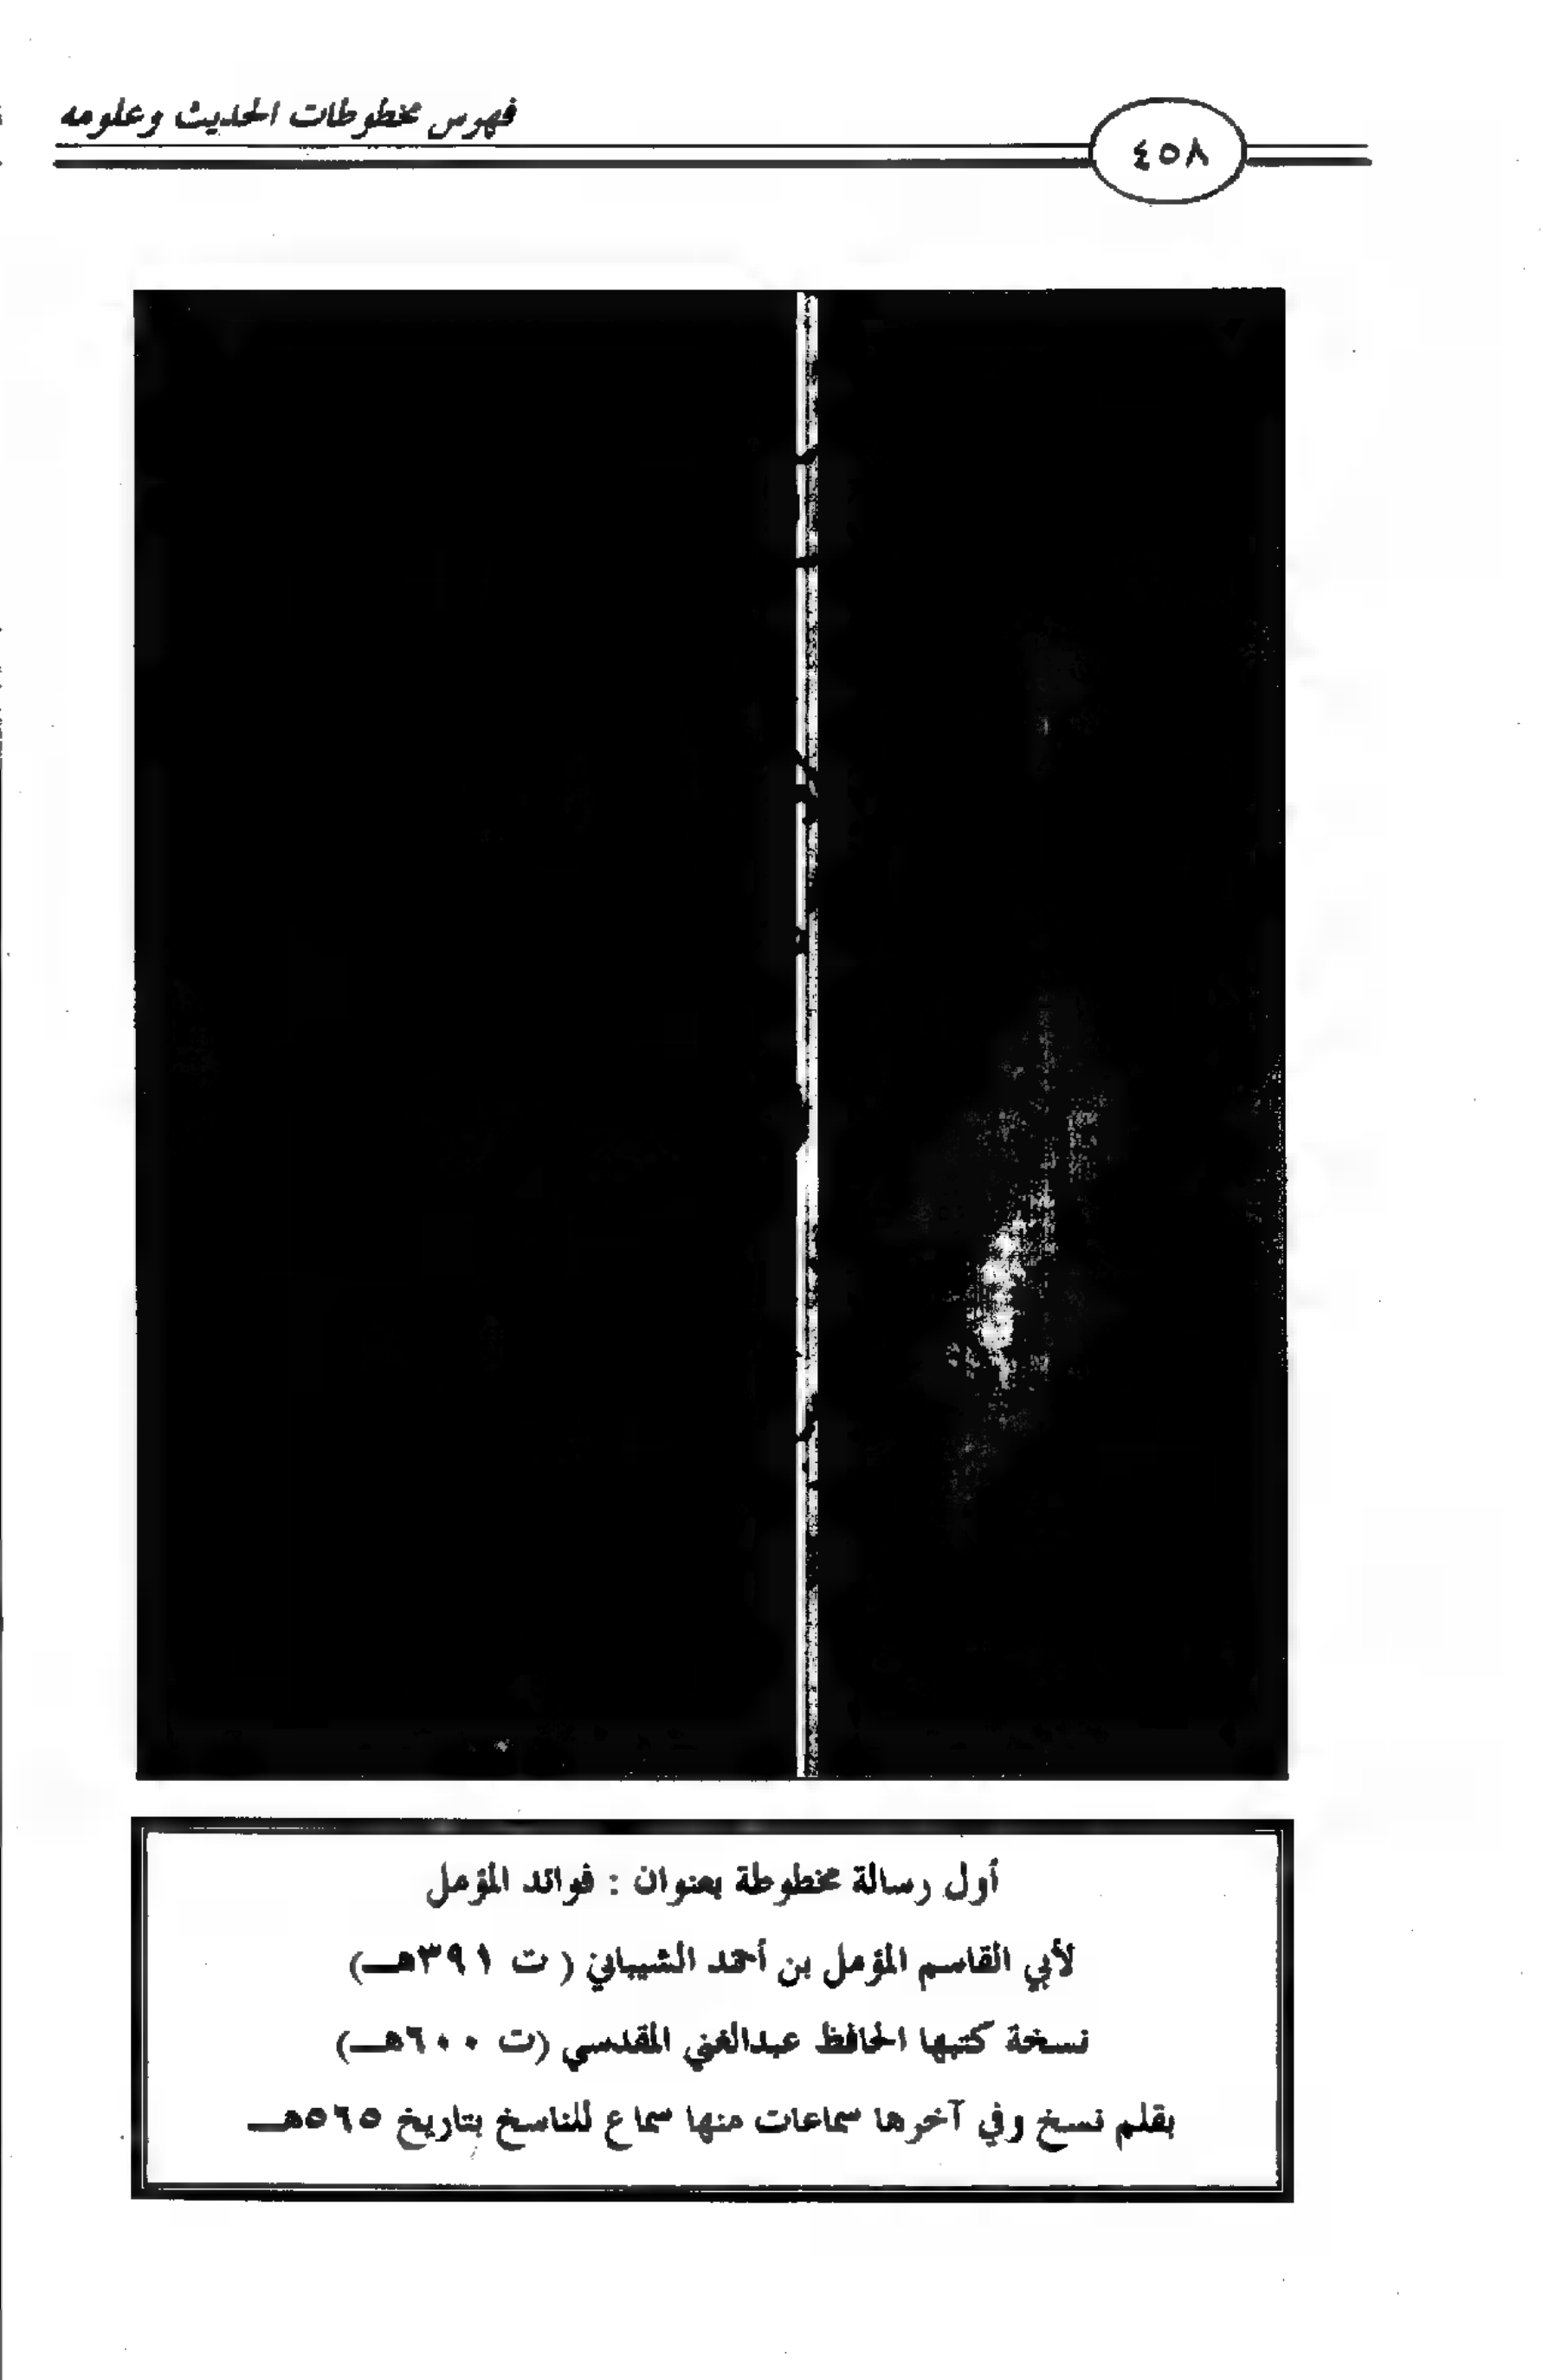 ٤٥٨
فهرس مخطوطات الحديث وعلومه
أول رسالة مخطوطة بعنوان : فوائد المؤمل
لأبي القاسم المؤمل بن أحمد الشيباني ( ت ٣٩١هـ)
نسخة كتبها الحافظ عبدالغني المقدسي (ت ٦٠٠هـ)
بقلم نسخ وفي آخرها سماعات منها سماع للناسخ بتاريخ ٥٦٥هـ